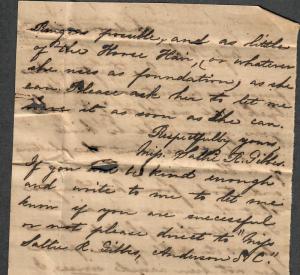 as possible, and as little
of the Horse Hair, (or whatever
she uses as foundation,) as she
can. Please ask her to let me
have it as soon as she can.
Respectfully yours,
Miss. Sallie R.
If you will be kind enough
and write to me to let me
know if you are successful
or not please direct to "Miss
Sallie R. Anderson C."